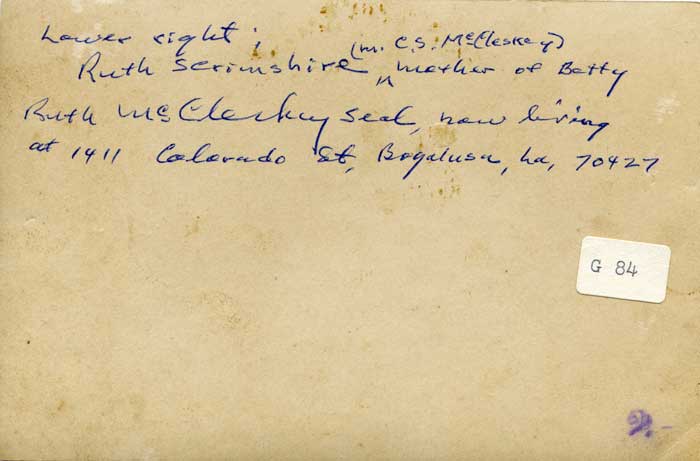 Lower right:
(m. C.S. McCleskey)
Ruth Scrimshire ^ mother of Betty
Ruth McCleskey Seal, now living
at 1411 Colorado St, Bogalusa, La, 70427
G 84